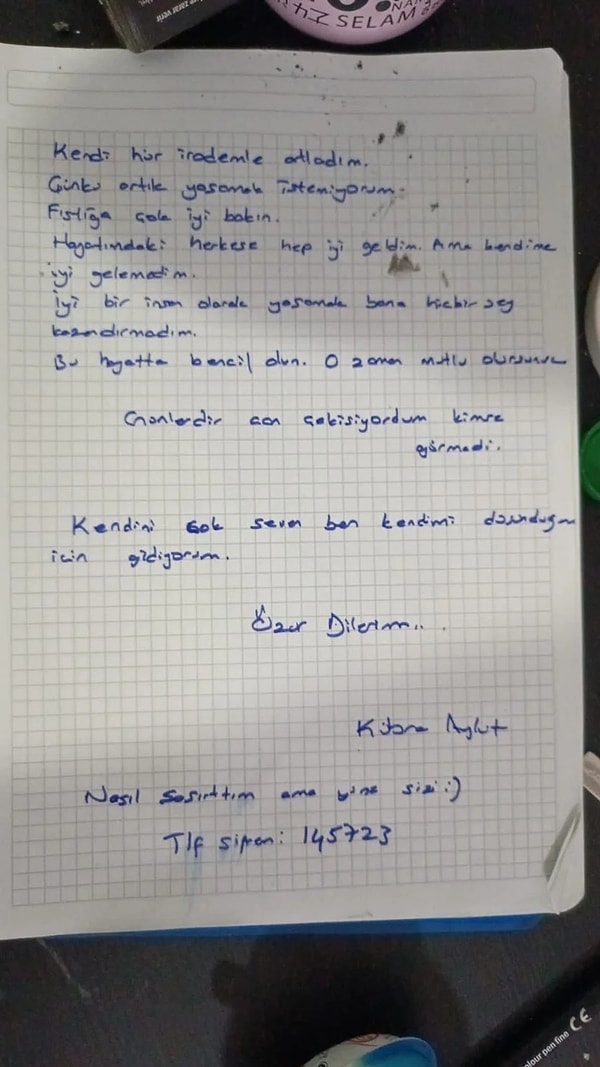 zarar verir
SELAM
Kendi hür irademle atladım.
Çünkü artık yaşamak istemiyorum.
Fıstığa çok iyi bakın.
Hayatımdaki herkese hep iyi geldim. Ama kendime
iyi gelemedim.
İyi bir insan olarak yaşamak bana hiçbir şey
kazandırmadım.
Bu hayatta bencil olun. O zaman mutlu olursunuz
Günlerdir can çekişiyordum kimse
görmedi.
Kendini çok seven ben kendimi düşündüğüm
için gidiyorum.
Özür Dilerim...
Kübra Aykut
Nasıl Şaşırttım ama yine sizi :)
Tlf şifrem: 145723
colour pen fine CE